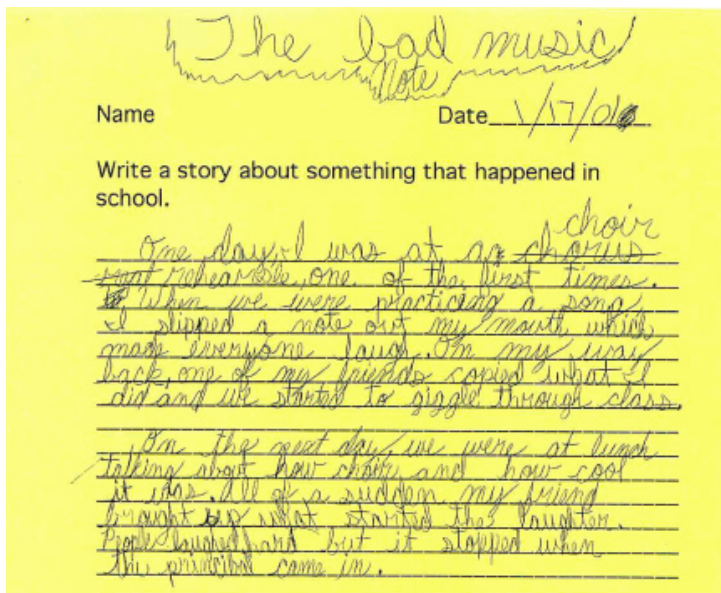 The bad music
Note
Name Date 1/17/01
Write a story about something that happened in
school.
choir
One day, I was at a chorus
rehearsle, one of the first times.
When we were practicing a song,
I slipped a note out my mouth which
made everyone laugh. On my way
back, one of my friends copied what I
did and we started to giggle through class.
On the next day, we were at lunch
talking about how choir, and how cool
it was. All of a sudden my friend
brought up what started the laughter.
People laughed hard but it stopped when
the principal came in.